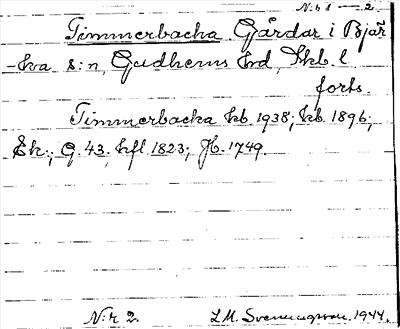 N:r 1 — 2.
Timmerbacka. Gårdar i Bjär
-ka s:n, Gudhems hd, Skb. l.
forts.
Timmerbacka kb. 1938; kb. 1896;
Ek.; G. 43. hfl. 1823; Jb. 1749.
N:r 2. L.M. Svenungsson. 1944.